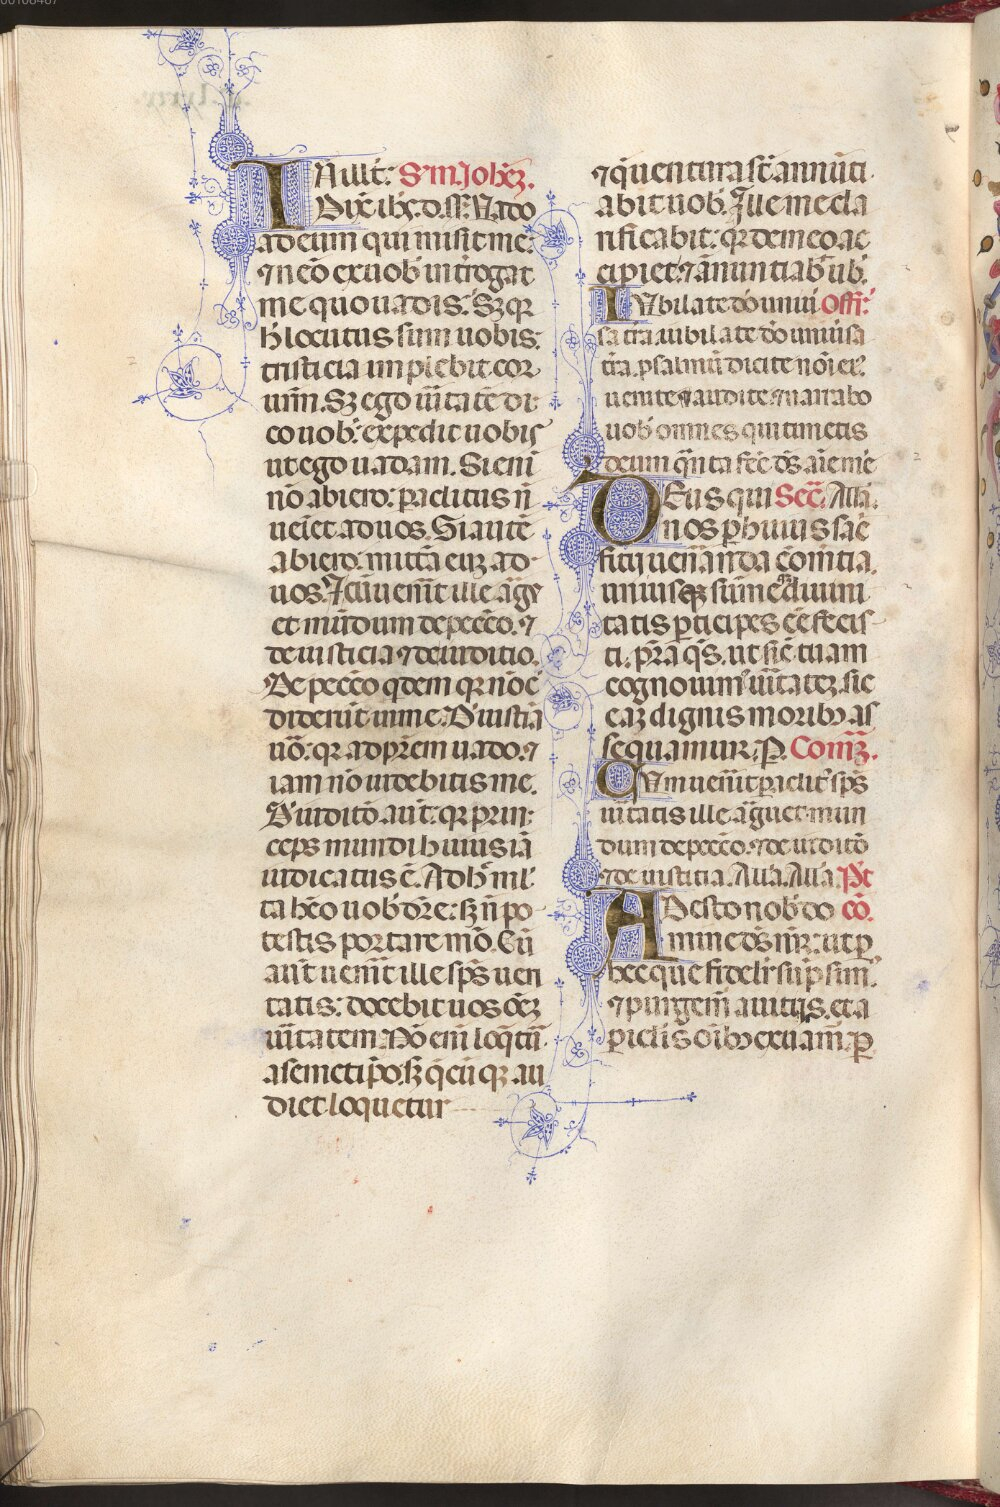 IN illt̄. S. m. Joħez.
Dix̄ ihc̄. d. s. Vado
ad eum qui misit me:
⁊ neō ex uob̄ int̄rogat
me quo uadis. Sꝫ qꝛ
h̄ locutus sum uobis:
tristicia impleb̄it. cor
urm̄. Sꝫ ego uīta tē di
co uob̄: expedit uobis
ut ego uadam. Si eni
nō abiero: paclitus n̄
ueīet ad uos. Si autē
abiero: mittā euꝫ ad
uos. ⁊ cū uen̄it ille āge
et mūdum de pecc̄o. ⁊
de iusticia ⁊ de iuditio.
De pecc̄o qdem qꝛ nō c̄
diderūt in me. D iustīa
uō. qꝛ ad prēm uado. ⁊
iam nō uidebitis me.
D iuditō aūt. qꝛ prin
ceps mundi huius iā
iudicatus ē. Adh̄ ml̄
ta hēo uob̄ dr̄e: sꝫ n̄ po
testis portare mō. Cū
aūt uen̄it ille sp̄s ueri
tatis: docebit uos oēꝫ
uīitatem Nō eni loq̄tū
a semetip̄o. sꝫ q̄cūqꝫ au
diet loquetur
⁊ q̄ uentura st̄ annūti
abit uob̄. Ille me cla
rificabit: qꝛ de meo ac
cipiet. ⁊ ānuntiab̄ ub̄.
IVbilate dō uniui Offī:
sa tra. iubilate dō uniūsa
tr̄a. psalmū dicite nōi ei:
uenite ⁊ audite. ⁊ narrabo
uob̄ omnes qui timetis
deum qn̄ta fec̄ dn̄s aīe mē
DEus qui Sec̄. Alla.
nos p̄ huius sac̄
ficij uen̄anda cōm̄tia.
unius qꝫ sūmē diuini
tatis pticipes eē fecis
ti. pr̄a qs̄. ut sic̄ tuam
cognouim̄ uīitateꝫ. sic
eaꝫ dignis moribꝫ as
sequamur. P. Comꝫ.
CVm uen̄it paclit̄ sp̄s
uīitatis ille āguet mun
dum de pecc̄o. ⁊ de iuditō
⁊ de iusticia. Alla. Alla. Pt
ADesto nob̄ dō cō.
mine ds̄ nr̄: ut p
hec que fidelit̄ sūpsim̄.
⁊ purgem̄ a uitijs. et a
piclīs oībꝫ exuam̄. P